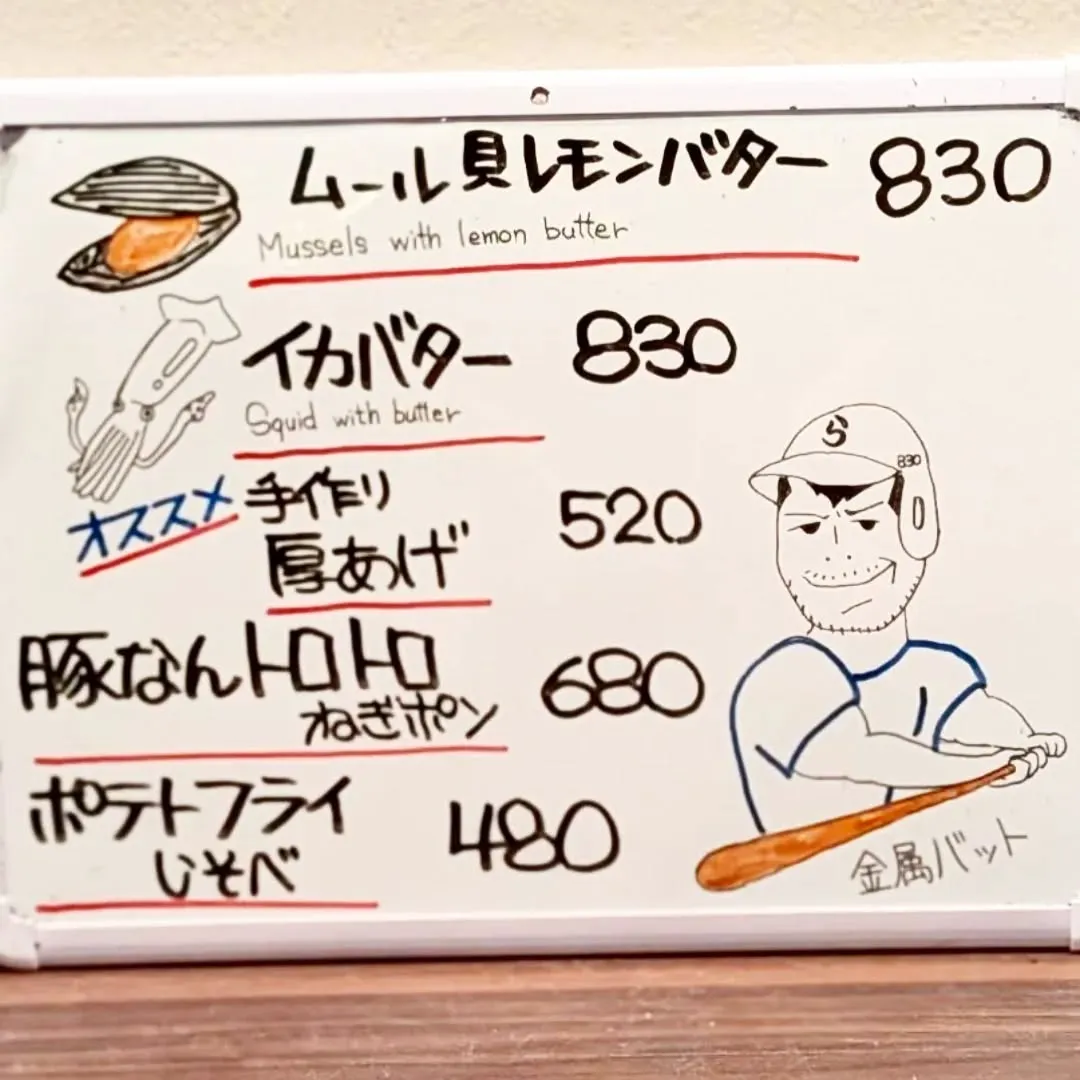 ムール貝レモンバター 830
Mussels with lemon butter
イカバター 830
Squid with butter
オススメ 手作り
厚あげ 520
豚なんトロトロ 680
ねぎポン
ポテトフライ 480
いそべ
ら
830
金属バット